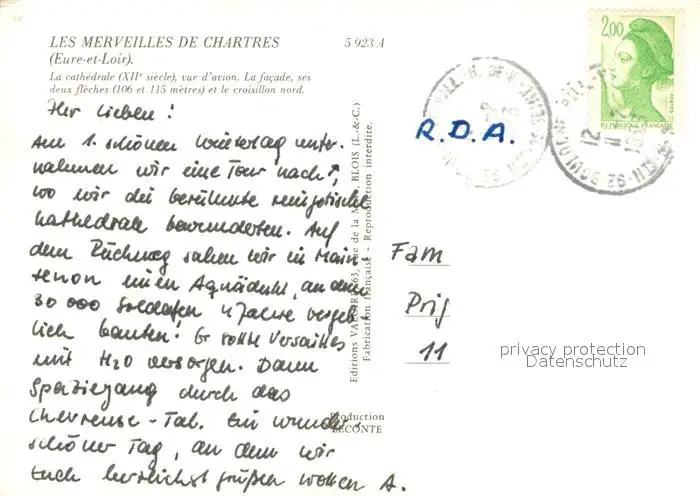 LES MERVEILLES DE CHARTRES
(Eure-et-Loir).
La cathédrale (XIIe siècle), vue d'avion. La façade, ses
deux flèches (106 et 115 mètres) et le croisillon nord.
5 923 A
Ihr Lieben!
Am 1. schönen Wintertag unter-
nahmen wir eine Tour nach ↑,
wo wir die berühmte reingotische
Kathedrale bewunderten. Auf
dem Rückweg sahen wir in Main-
tenon einen Aquädukt, an dem
30 000 Soldaten 4 Jahre vergeb-
lich bauten! Er sollte Versailles
mit H2O versorgen. Dann
Spaziergang durch das
Chevreuse-Tal. Ein wunder-
schöner Tag, an dem wir
Euch herzlichst grüßen wollen A.
Editions VALOIRE, 63, rue de la BLOIS (L.-&-C.)
Fabrication française - Reproduction interdite.
Production
LECONTE
R.D.A.
2,00
REPUBLIQUE FRANÇAISE
12
11
Fam
Prig
11
privacy protection
Datenschutz